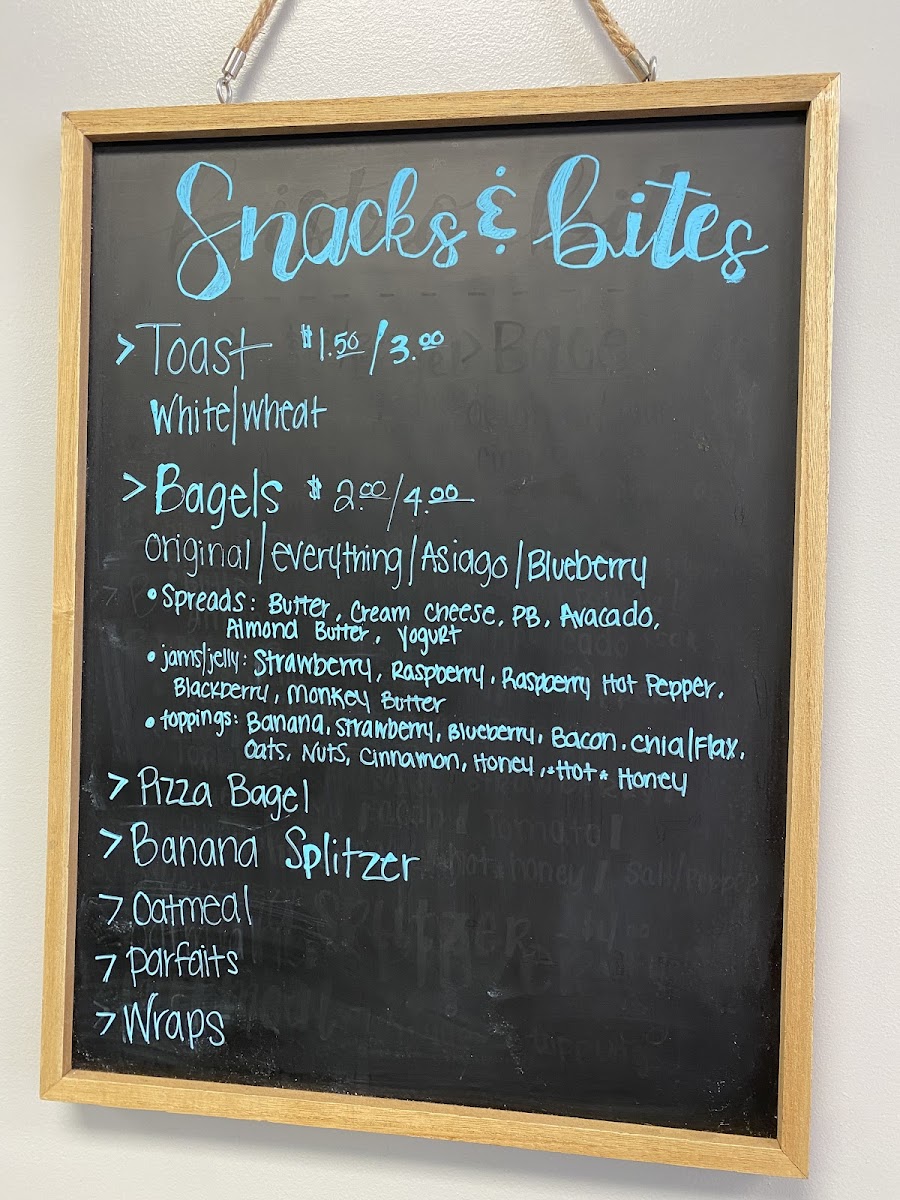 Snacks & Bites
> Toast $1.50/3.00
White/wheat
> Bagels $2.00/4.00
original/everything/Asiago/Blueberry
• Spreads: Butter, Cream cheese, PB, Avacado,
Almond Butter, Yogurt
• jams/jelly: Strawberry, Raspberry, Raspberry Hot Pepper,
Blackberry, Monkey Butter
• toppings: Banana, Strawberry, Blueberry, Bacon, Chia/Flax,
Oats, Nuts, Cinnamon, Honey, *Hot* Honey
> Pizza Bagel
> Banana Splitzer
> Oatmeal
> Parfaits
> Wraps